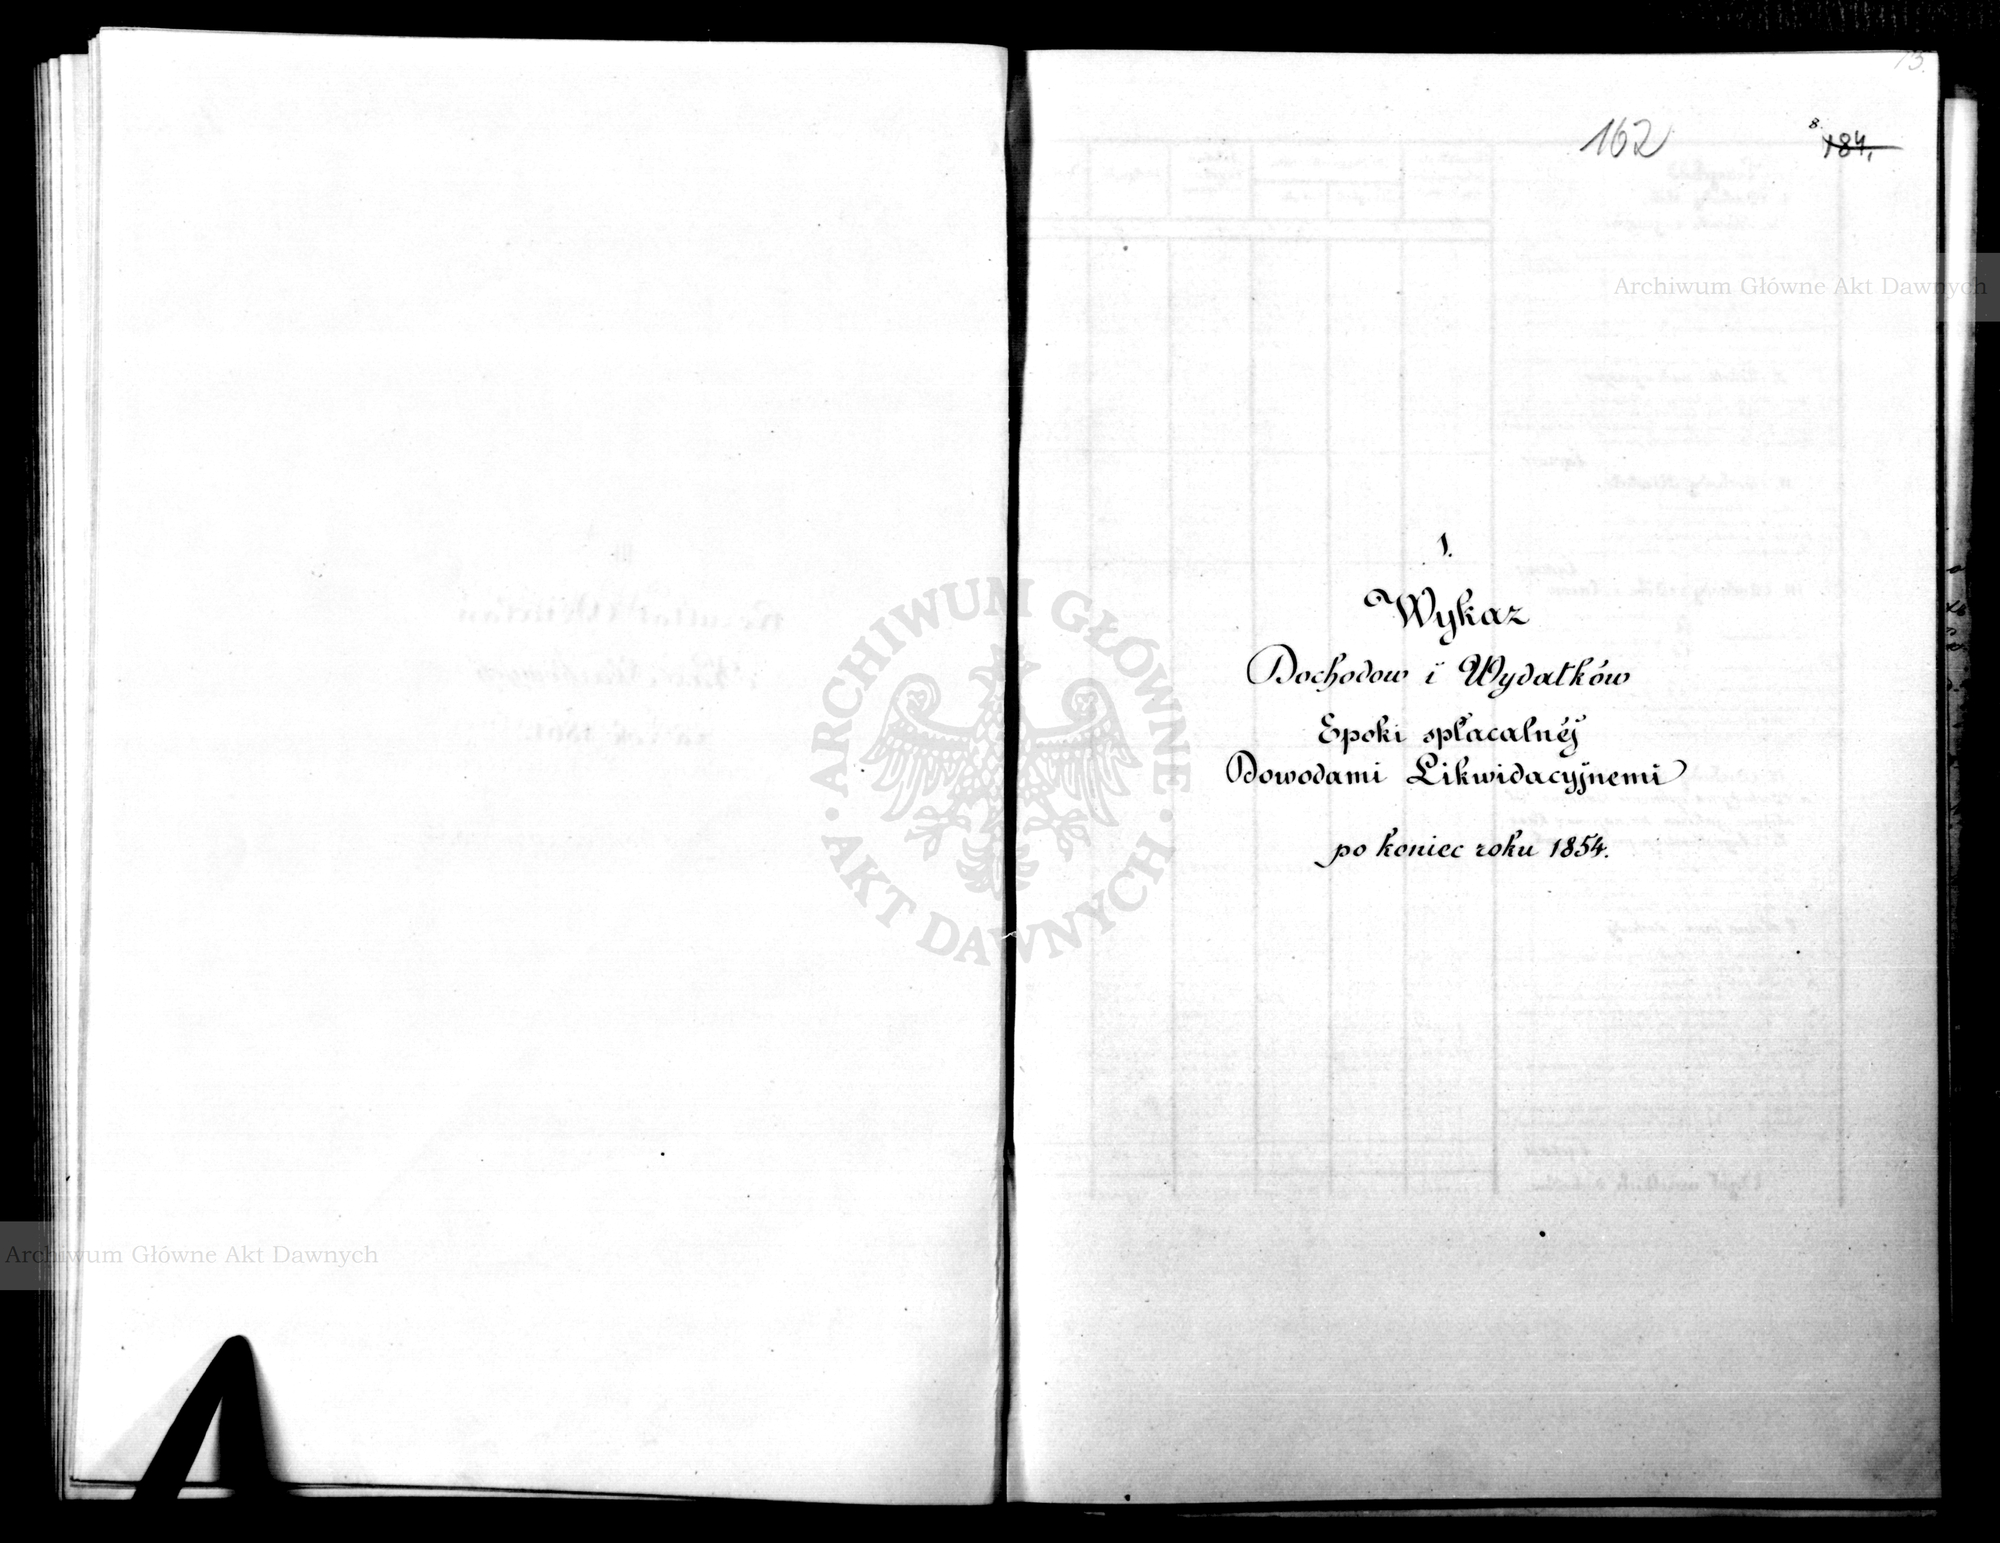 73.
162
8.
184.
Archiwum Główne Akt Dawnych
1.
Wykaz
Dochodow i Wydatków
Epoki spłacalnéj
Dowodami Likwidacyjnemi
po koniec roku 1854.
ARCHIWUM GŁÓWNE
AKT DAWNYCH
Archiwum Główne Akt Dawnych